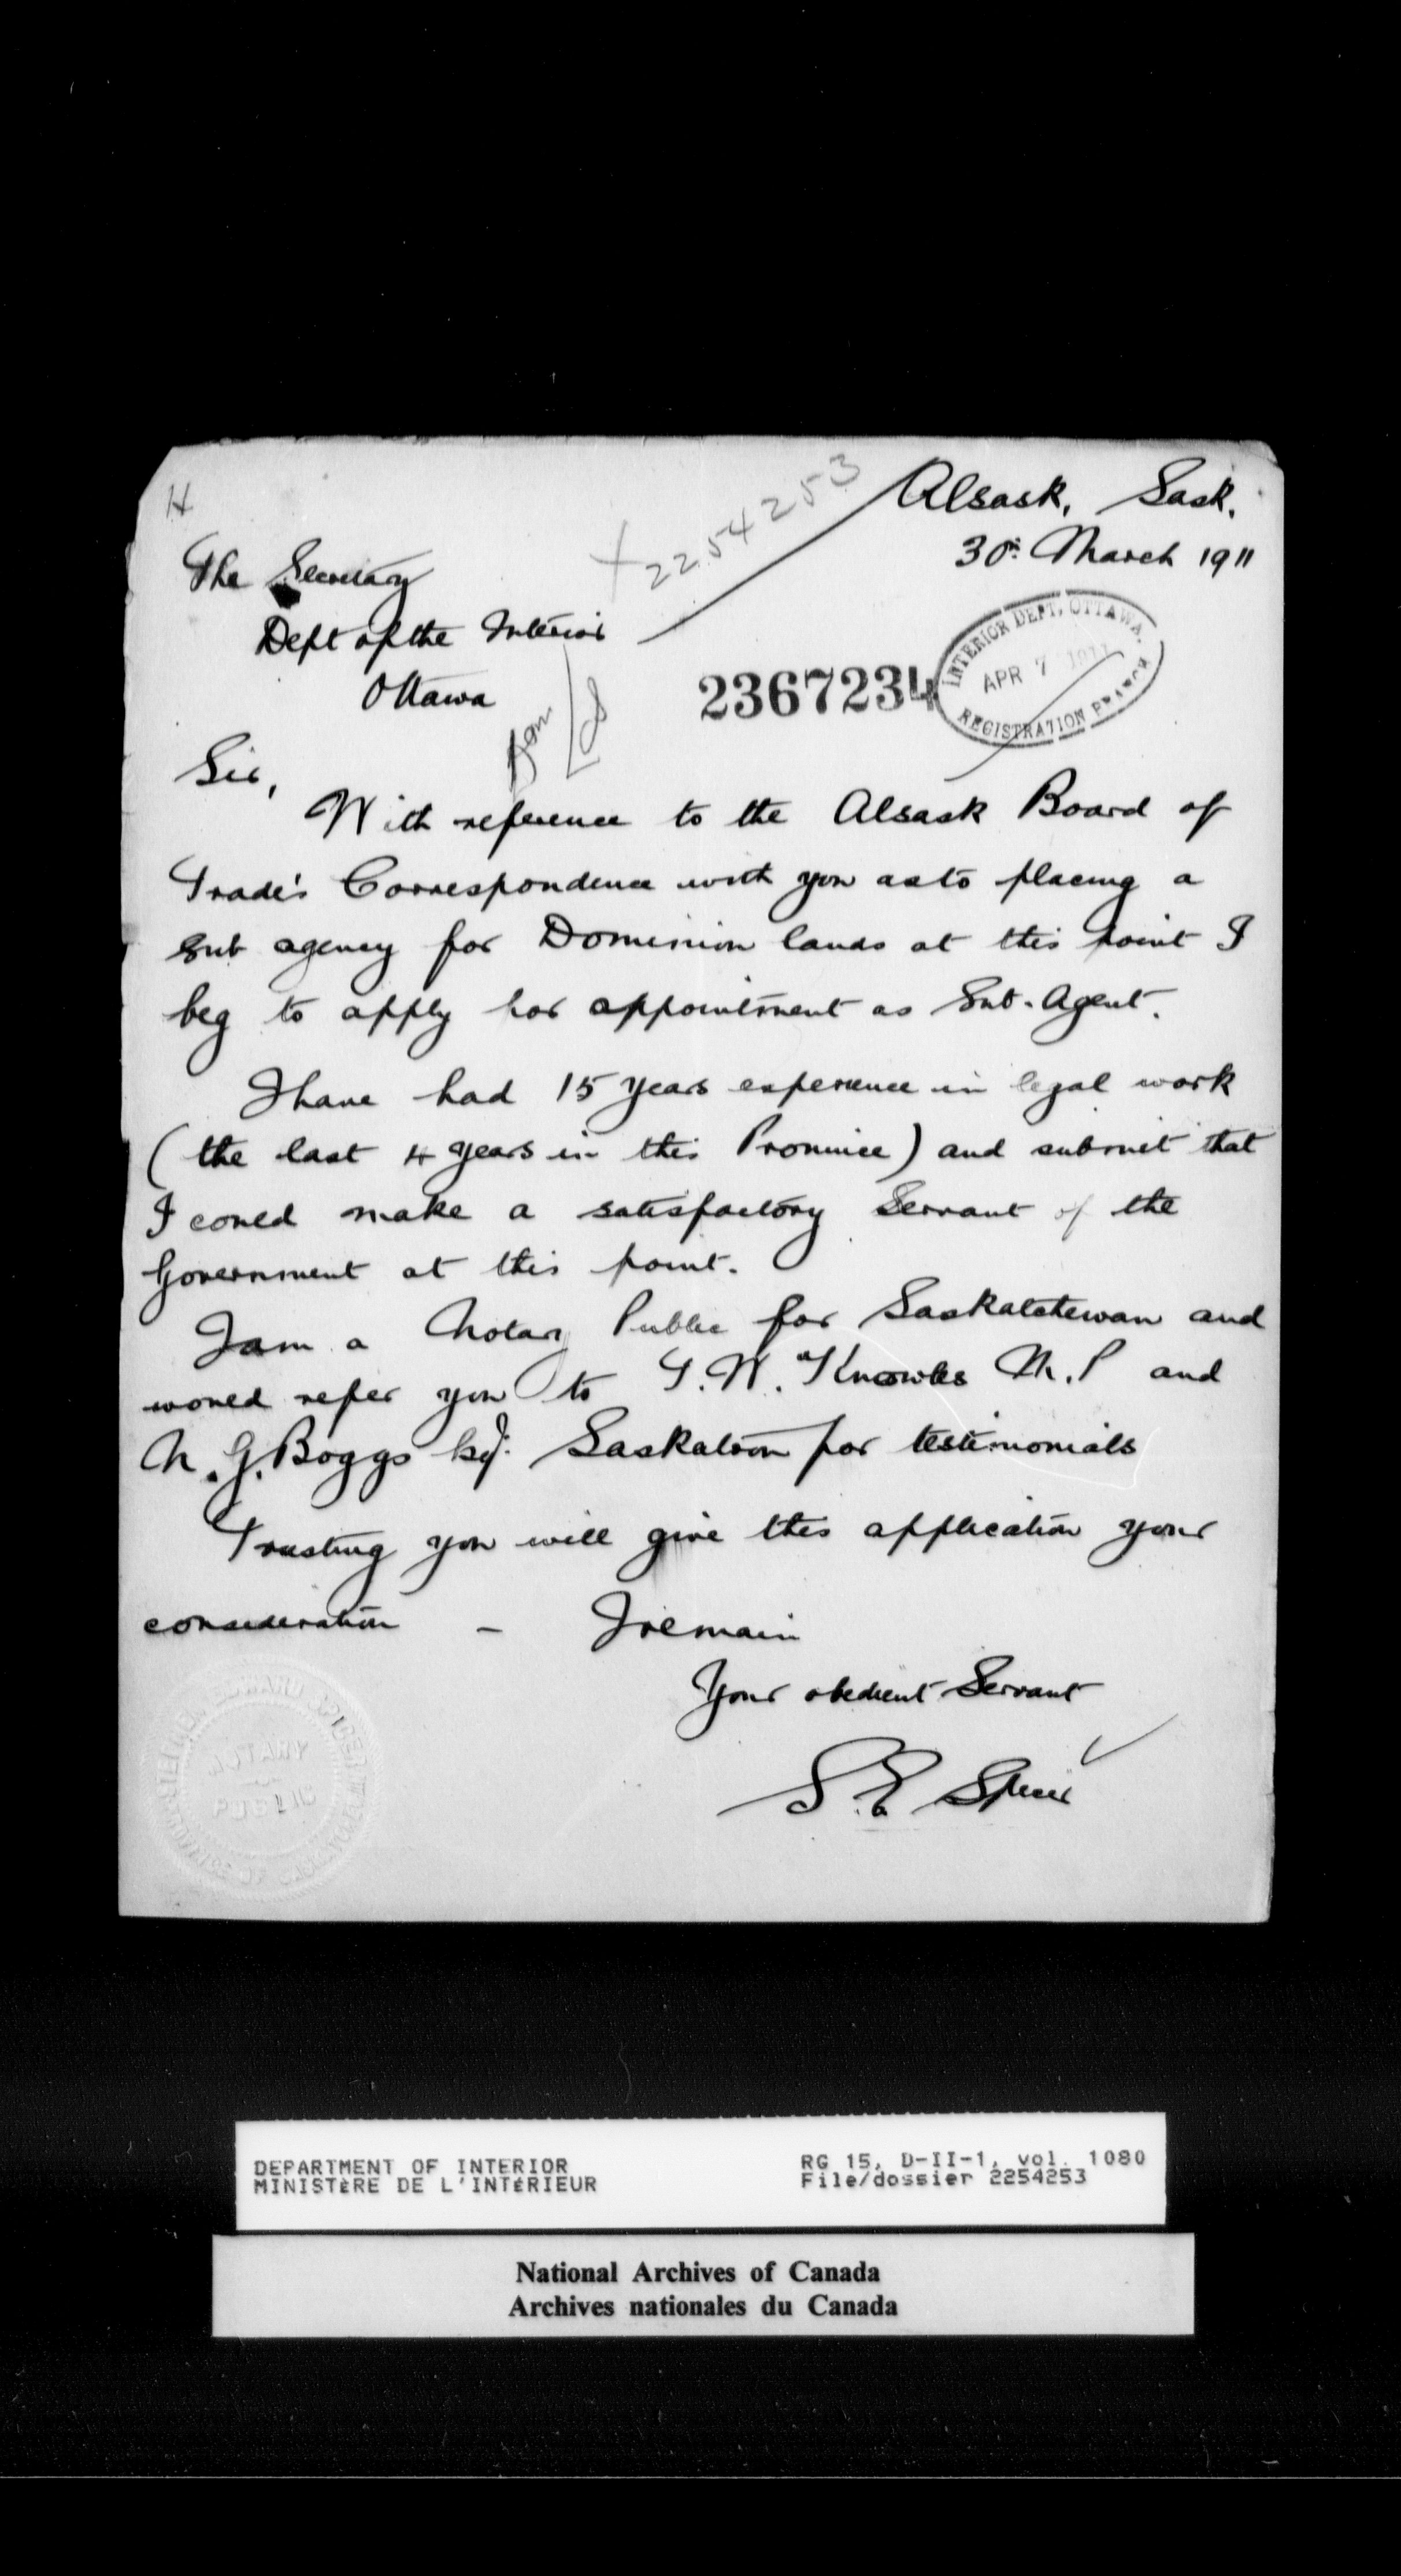 H
2254253
Alsask, Sask.
30th March 1911
The Secretary
Dept of the Interior
Ottawa
2367234
INTERIOR DEPT, OTTAWA.
APR 7 1911
REGISTRATION BRANCH
Sir,
With reference to the Alsask Board of
Trade's Correspondence with you as to placing a
Sub agency for Dominion lands at this point I
beg to apply for appointment as Sub-Agent.
I have had 15 years experience in legal work
(the last 4 years in this Province) and submit that
I could make a satisfactory Servant of the
Government at this point.
I am a Notary Public for Saskatchewan and
would refer you to T. W. Knowles M.P and
N. G. Boggs Esq. Saskatoon for testimonials
Trusting you will give this application your
consideration – I remain
Your obedient Servant
S. E. Spicer
EDWARD SPICER
NOTARY
PUBLIC
PROVINCE OF SASKATCHEWAN
DEPARTMENT OF INTERIOR
MINISTÈRE DE L'INTÉRIEUR
RG 15, D-II-1, vol. 1080
File/dossier 2254253
National Archives of Canada
Archives nationales du Canada